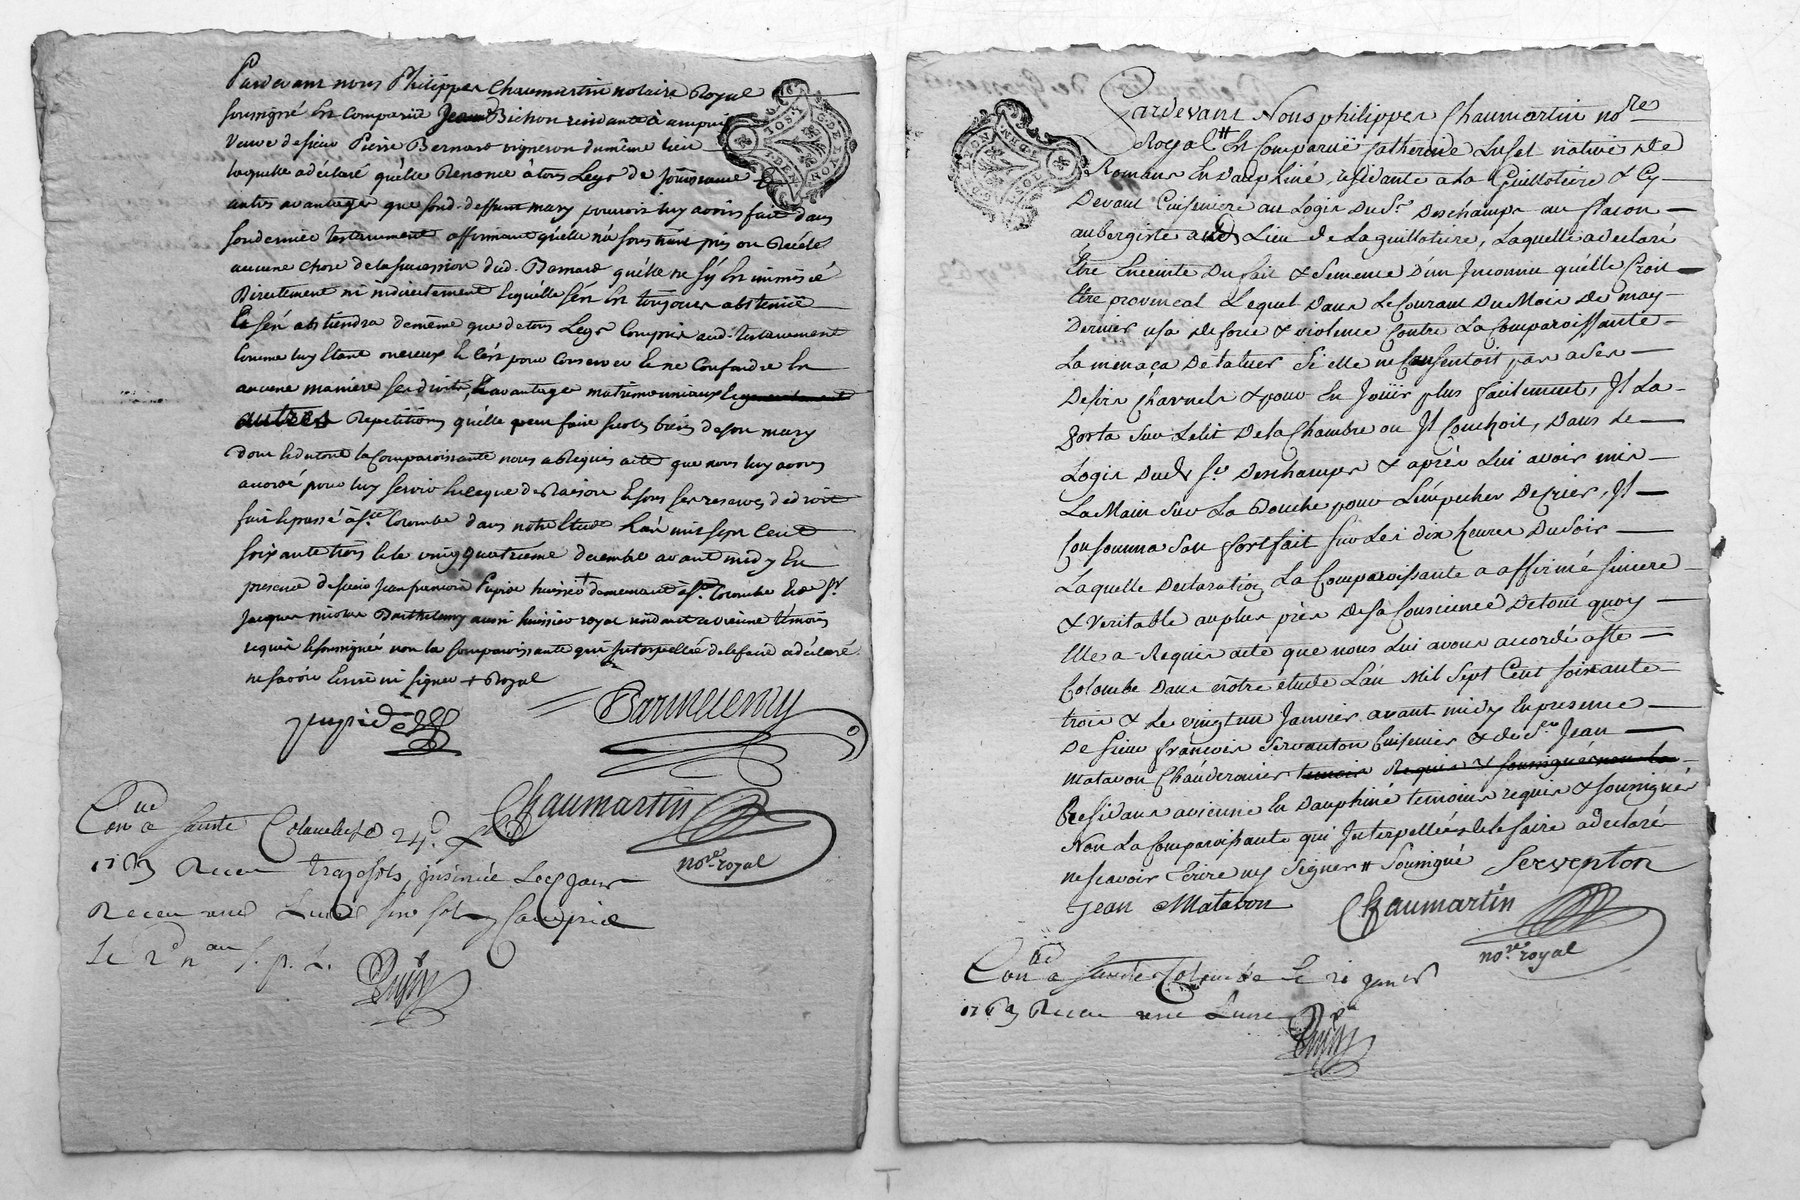 Pardevant nous Philippes Chaumartin notaire Royal
soussigné Est Comparüe Jeanne Bichon residante à ampuis
Veuve de sieur Pierre Bernard vigneron du même lieu
laquelle a déclaré qu'elle Renonce à tous Legs de joüissance &
autres avantages que sond. deffunt mary pouvoit luy avoir fait dans
son dernier testament affirmant qu'elle n'a soustrait pris ou Récélé
aucune chose de la succession dud. Bernard qu'elle ne s'y Est immiscé
Directement ni indirectement Lequ'elle s'en Est toujours abstenüe
Et s'en abstiendra de même que de tous Legs Compris aud. testament
Comme luy Etant onereux Et C'est pour Conserver Et ne Confondre En
aucune maniere ses droits, Et avantages matrimoniaux
autres Repetitions qu'elle peut faire sur les biens de son mary
dont Et du tout la Comparoissante nous a Requis acte que nous luy avons
accordé pour luy servir Ec que de Raison Et sous ses reserves de droit
fait Et passé à Ste. Colombe dans notre Etude L'an mil sept Cent
soixante trois Et le vingt quatrieme decembre avant midy En
presence de sieur Jean francois Pupier huissier + demeurant à Ste. Colombe Et de Sr.
Jacques nicolas Barthelemy aussi huissier royal residant a vienne témoins
requis Et soussignés non la Comparoissante qui Interpellée de le faire a déclaré
ne savoir Ecrire ni signer + Royal
pupier
Barthelemy
Chaumartin
nore. royal
Con.lé a Sainte Colombe le 24. Xbre
1763 Receu treize sols, insinué Led. Jour
Receu une Livre six sols y Compris
Le 2d. nau s. p. L.
Pardevant Nous philippes Chaumartin nore.
Royal # Est Comparüe Catherine Luset native de
Romans En Dauphiné, residante a La Guillotiere & Cy
Devant Cuisiniere au Logis Du Sr. Deschamps au flacon
aubergiste aud. Lieu de La guillotiere, Laquelle a declaré
Etre Enceinte Du fait & semence D'un Inconnu qu'elle Croit
Etre provençal Lequel dans Le Courant Du Mois De may
Dernier usa de force & violence Contre La Comparoissante
La menaça De la tuer Si elle ne Consentoit pas a ses
Desirs Charnels & pour En Joüir plus facilement, Il La
porta Sur Le lit De la Chambre ou Il Couchoit, Dans Le
Logis Dud. Sr. Deschamps & après Lui avoir mis
La Main Sur La Bouche pour L'empecher De Crier, Il
Consomma Son fortfait Sur Les dix heures Du Soir
Laquelle Declaration La Comparoissante a affirmé sincere
& Veritable au plus près De sa Conscience De tout quoy
Elle a Requis acte que nous Lui avons accordé a Ste.
Colombe Dans nôtre étude L'an Mil Sept Cent Soixante
trois & Le vingt un Janvier avant midy En presence
De sieur françois Servanton Cuisinier & de Sr. Jean
matavon Chauderonier temoins Requis & soussignés non la
Residans a vienne En Dauphiné temoins requis & soussignés
Non La Comparoissante qui Interpellée de le faire a declaré
ne Scavoir Ecrire ny Signer # Soussigné Serventon
Jean Matavon
Chaumartin
nore. royal
Con.lé a Sainte Colombe Le 21 Janvier
1763 Receu une Livre